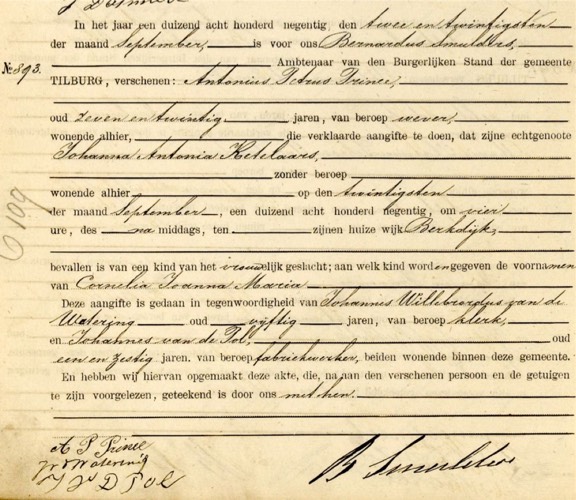 In het jaar een duizend acht honderd negentig, den twee en twintigsten
der maand September, is voor ons Bernardus Smulders,
Ambtenaar van den Burgerlijken Stand der gemeente
No. 893.
TILBURG, verschenen: Antonius Petrus Prinee,
oud zeven en twintig jaren, van beroep wever,
wonende alhier, die verklaarde aangifte te doen, dat zijne echtgenoote
Johanna Antonia Ketelaars,
zonder beroep
wonende alhier op den twintigsten
der maand September, een duizend acht honderd negentig, om vier
ure, des na middags, ten zijnen huize wijk Berkdijk,
bevallen is van een kind van het vrouwelijk geslacht; aan welk kind worden gegeven de voornamen
van Cornelia Joanna Maria
Deze aangifte is gedaan in tegenwoordigheid van Johannes Willebrordus van de
Watering oud vijftig jaren, van beroep klerk,
en Johannes van de Pol, oud
een en zestig jaren, van beroep fabriekwerker, beiden wonende binnen deze gemeente.
En hebben wij hiervan opgemaakt deze akte, die, na aan den verschenen persoon en de getuigen
te zijn voorgelezen, geteekend is door ons met hen.
A P Prinee
Watering
J v D Pol
B Smulders